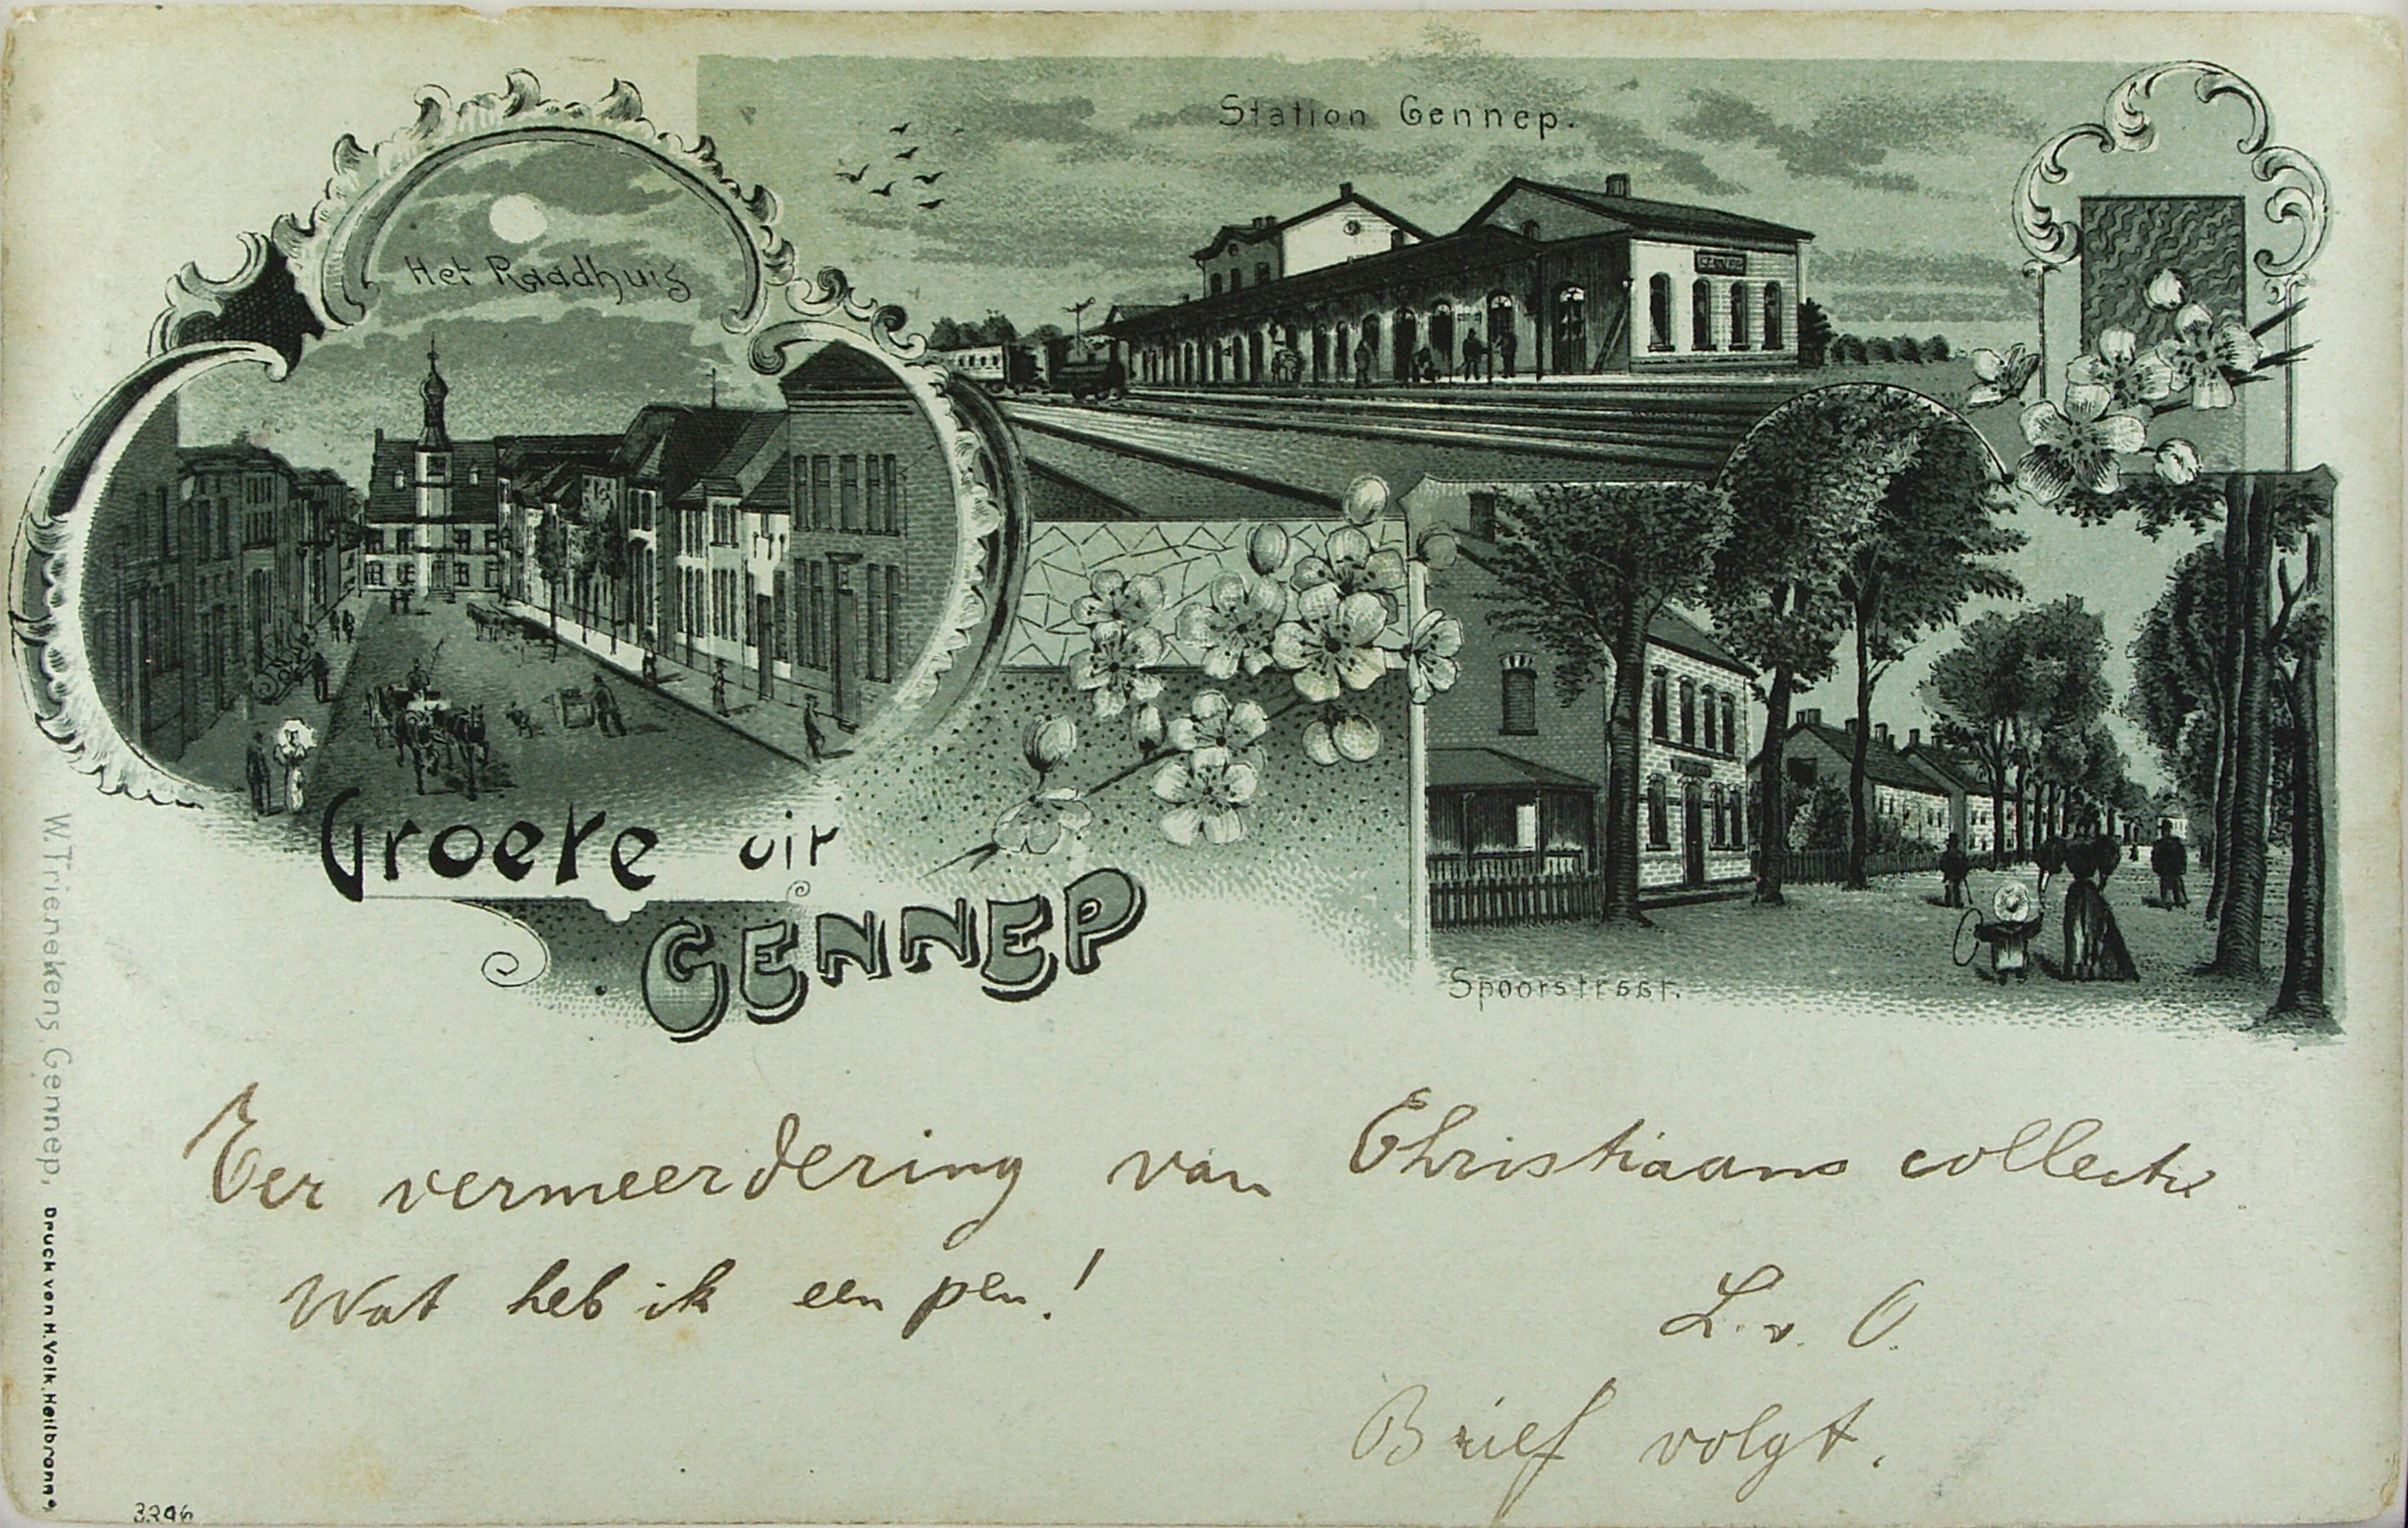 Station Gennep.
Het Raadhuis
GENNEP
Groete uit
GENNEP
Spoorstraat.
W. Trienekens, Gennep, Druck von H. Volk, Heilbronn
Ter vermeerdering van Christiaans collectie
Wat heb ik een pen!
L. v. O.
Brief volgt.
3296